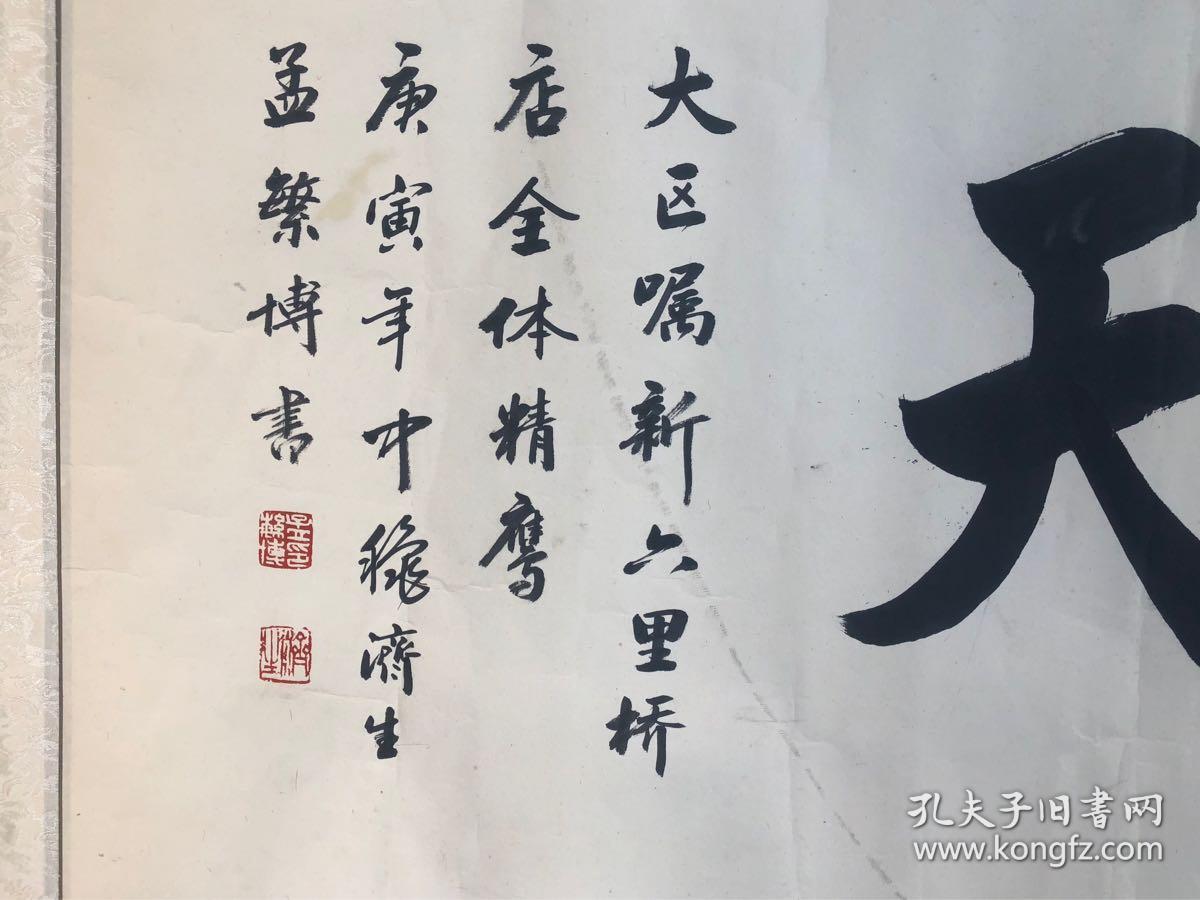 天
大区嘱新六里桥
店全体精鹰
庚寅年中秋济生
孟繁博书
孟印繁博
济生
孔夫子旧書网
www.kongfz.com